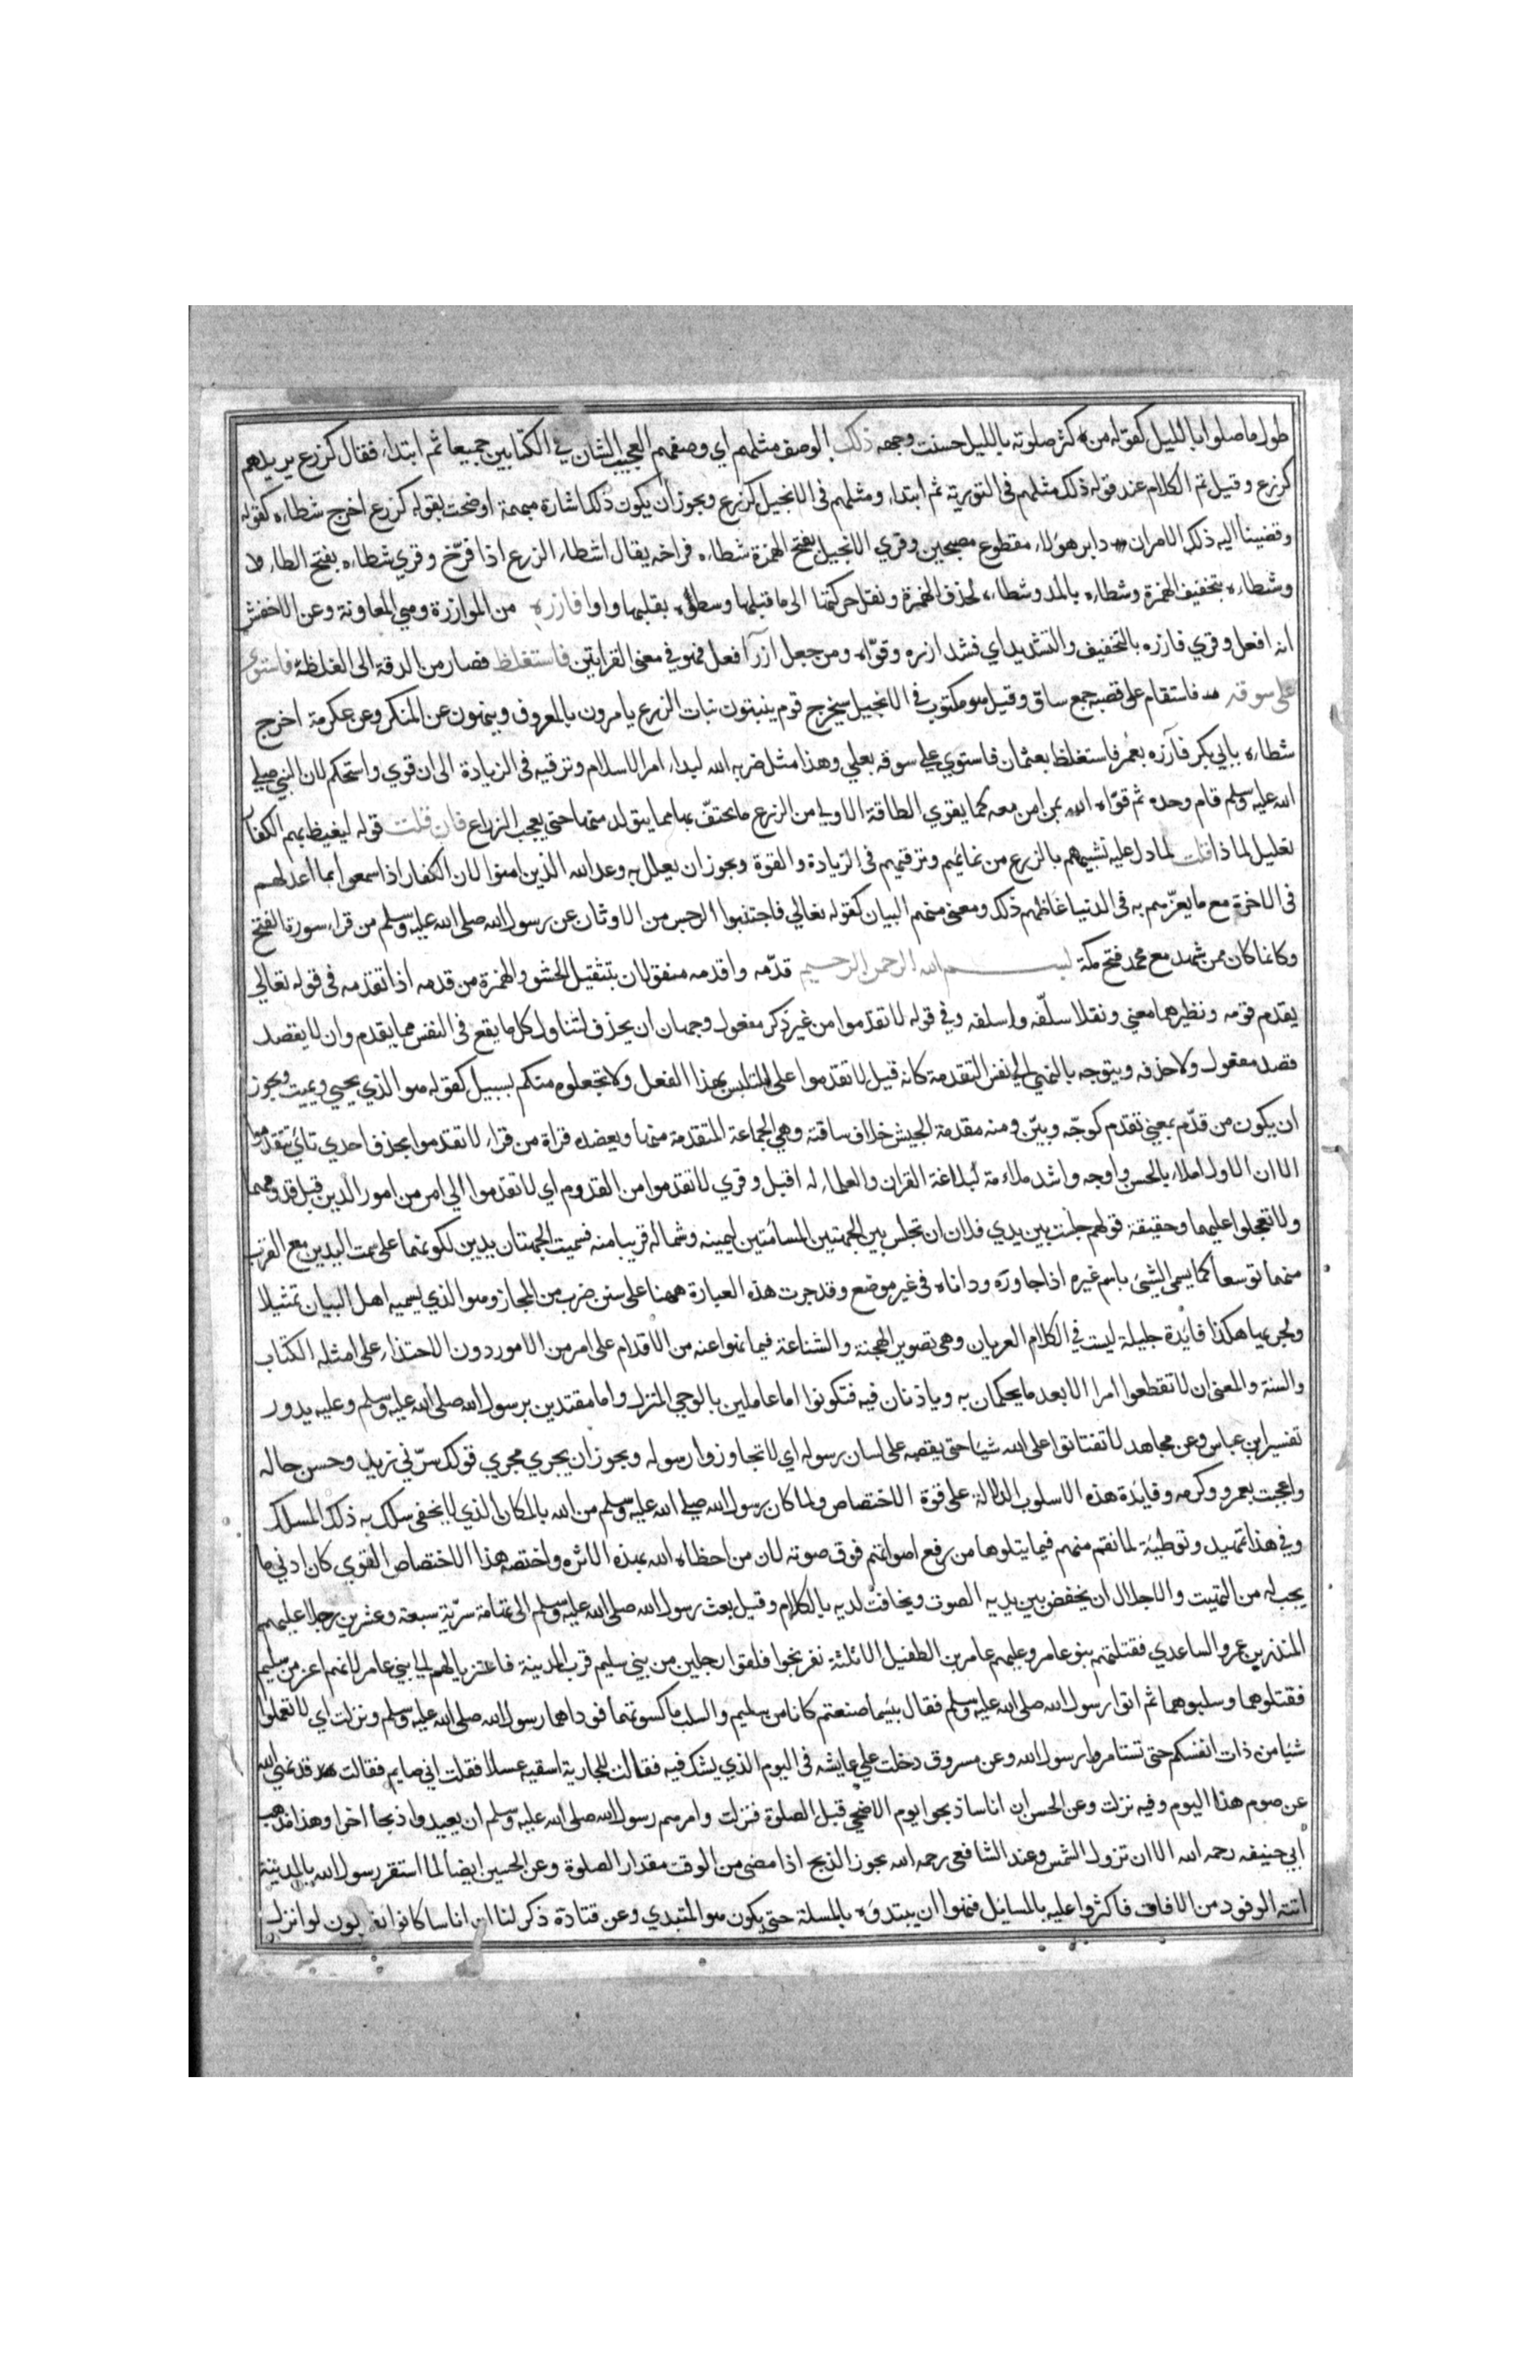 طول ما صلوا بالليل كقوله من كثر صلوته بالليل حسنت وجهه ذلك الوصف مثلهم اي وصفهم العجيب الشان في الكتابين جميعا ثم ابتداء فقال كزرع يريد هم
كزرع وقيل تم الكلام عند قوله ذلك مثلهم في التورية ثم ابتداء ومثلهم في الانجيل كزرع ويجوز ان يكون ذلك اشارة مبهمة اوضحت بقوله كزرع اخرج شطاءه كقوله
وقضينا اليه ذلك الامر ان دابر هؤلاء مقطوع مصبحين وقري الانجيل بفتح الهمزة شطاءه فراخه يقال اشطاء الزرع اذا فرّخ وقري شطاءه بفتح الطاء
وشطاءه بتخفيف الهمزة وشطاءه بالمد وشطاء بحذف الهمزة ونقل حركتها الى ما قبلها وسطوه بقلبها واوا فازره من الموازرة وهي المعاونة وعن الاخفش
انه افعل وقري فازره بالتخفيف والتشديد اي فشد ازره وقوّاه ومن جعل ازر افعل فهو في معنى القرايتين فاستغلظ فصار من الدقة الى الغلظة فاستوى
على سوقه فاستقام على قصبه جمع ساق وقيل هو مكتوب في الانجيل سيخرج قوم ينبتون نبات الزرع يامرون بالمعروف وينهون عن المنكر وعن عكرمة اخرج
شطاءه بابي بكر فآزره بعمر فاستغلظ بعثمان فاستوي علي سوقه بعلي وهذا مثل ضربه الله لبداء امر الاسلام وترقيه في الزيادة الى ان قوي واستحكم لان النبي صلي
الله عليه وسلم قام وحده ثم قوّاه الله بمن امن معه كما يقوي الطاقة الاولى من الزرع ما يحتفّ بها مما يتولد منها حتى يعجب الزراع فان قلت قوله ليغيظ بهم الكفار
تعليل لماذا قلت لما دل عليه تشبيههم بالزرع من نمائهم وترقيهم في الزيادة والقوة ويجوز ان يعلل به وعد الله الذين امنوا لان الكفار اذا سمعوا بما اعد لهم
في الاخرة مع ما يعزّهم به في الدنيا غاظهم ذلك ومعنى منهم البيان كقوله تعالي فاجتنبوا الرجس من الاوثان عن رسول الله صلى الله عليه وسلم من قراء سورة الفتح
وكانما كان ممن شهد مع محمد فتح مكة بسم الله الرحمن الرحيم قدّمه واقدمه منقولان بتثقيل الحشو والهمزة من قدمه اذا تقدمه في قوله تعالي
يقدم قومه ونظيرهما معني ونقلا سلّفه واسلفه وفي قوله لا تقدموا من غير ذكر مفعول وجهان ان يحذف لتناول كل ما يقع في النفس مما يقدم وان لا يقصد
قصد مفعول ولا حذفه ويتوجه بالنهي الى نفس التقدمة كانه قيل لا تقدموا على التلبس بهذا الفعل ولا تجعلوه منكم بسبيل كقوله هو الذي يحيي ويميت ويجوز
ان يكون من قدّم بمعني تقدم كوجّه وبيّن ومنه مقدمة الجيش خلاف ساقته وهي الجماعة المتقدمة منها ويعضده قراة من قراء لا تقدموا بحذف احدي تائي تتقدموا
الا ان الاول املاء بالحسن واوجه واشد ملاءمة لبلاغة القران والعلماء له اقبل وقري لا تقدموا من القدوم اي لا تقدموا الي امر من امور الدين قبل قدومهما
ولا تعجلوا عليهما وحقيقة قولهم جلست بين يدي فلان ان تجلس بين الجهتين المسامتين ليمينه وشماله قريبا منه فسميت الجهتان يدين لكونهما على سمت اليدين مع القرب
منهما توسعا كما يسمي الشئ باسم غيره اذا جاوره وداناه في غير موضع وقد جرت هذه العبارة ههنا على سنن ضرب من المجاز وهو الذي يسميه اهل البيان تمثيلا
ولجريها هكذا فايدة جليلة ليست في الكلام العريان وهي تصوير الهجنة والشناعة فيما نهوا عنه من الاقدام على امر من الامور دون الاحتذاء على امثله الكتاب
والسنة والمعنى ان لا تقطعوا امرا الا بعد ما يحكمان به وياذنان فيه فتكونوا اما عاملين بالوحي المنزل واما مقتدين برسول الله صلى الله عليه وسلم وعليه يدور
تفسير ابن عباس وعن مجاهد لا تفتاتوا على الله شيا حتى يقصه على لسان رسوله اي لا تجاوزوا رسوله ويجوز ان يجري مجري قولك سرّني زيد وحسن حاله
واعجبت بعمرو وكرمه وفايدة هذه الاسلوب الدلالة على قوة الاختصاص ولما كان رسول الله صلي الله عليه وسلم من الله بالمكان الذي لا يخفى سلك به ذلك المسلك
وفي هذا تمهيد وتوطئة لما نقم منهم فيما يتلوها من رفع اصواتهم فوق صوته لان من احظاه الله بهذه الاثره واختصه هذا الاختصاص القوي كان ادني ما
يجب له من التهيب والاجلال ان يخفض بين يديه الصوت ويخافت لديه بالكلام وقيل بعث رسول الله صلى الله عليه وسلم الى تهامة سرّية سبعة وعشرين رجلا عليهم
المنذر بن عمرو الساعدي فقتلتهم بنو عامر وعليهم عامر بن الطفيل الا ثلثة نفر نجوا فلقوا رجلين من بني سليم قرب المدينة فاعتزيا لهم الى بني عامر لانهم اعز من سليم
فقتلوهما وسلبوهما ثم اتوا رسول الله صلى الله عليه وسلم فقال بئسما صنعتم كانا من سليم والسلب ما كسوتهما فوداهما رسول الله صلى الله عليه وسلم ونزلت اي لا تعملوا
شيا من ذات انفسكم حتى تستامروا رسول الله وعن مسروق دخلت علي عايشه في اليوم الذي يشك فيه فقالت للجارية اسقيه عسلا فقلت اني صايم فقالت قد نهى الله
عن صوم هذا اليوم وفيه نزلت وعن الحسن ان اناسا ذبحوا يوم الاضحي قبل الصلوة فنزلت وامرهم رسول الله صلى الله عليه وسلم ان يعيدوا ذبحا اخر وهذا مذهب
ابي حنيفه رحمه الله الا ان تزول الشمس وعند الشافعي رحمه الله يجوز الذبح اذا مضى من الوقت مقدار الصلوة وعن الحسين ايضا لما استقر رسول الله بالمدينة
اتته الوفود من الافاق فاكثروا عليه بالمسايل فنهوا ان يبتدؤه بالمسلة حتى يكون هو المبتدي وعن قتادة ذكر لنا ان اناسا كانوا يقولون لو انزل